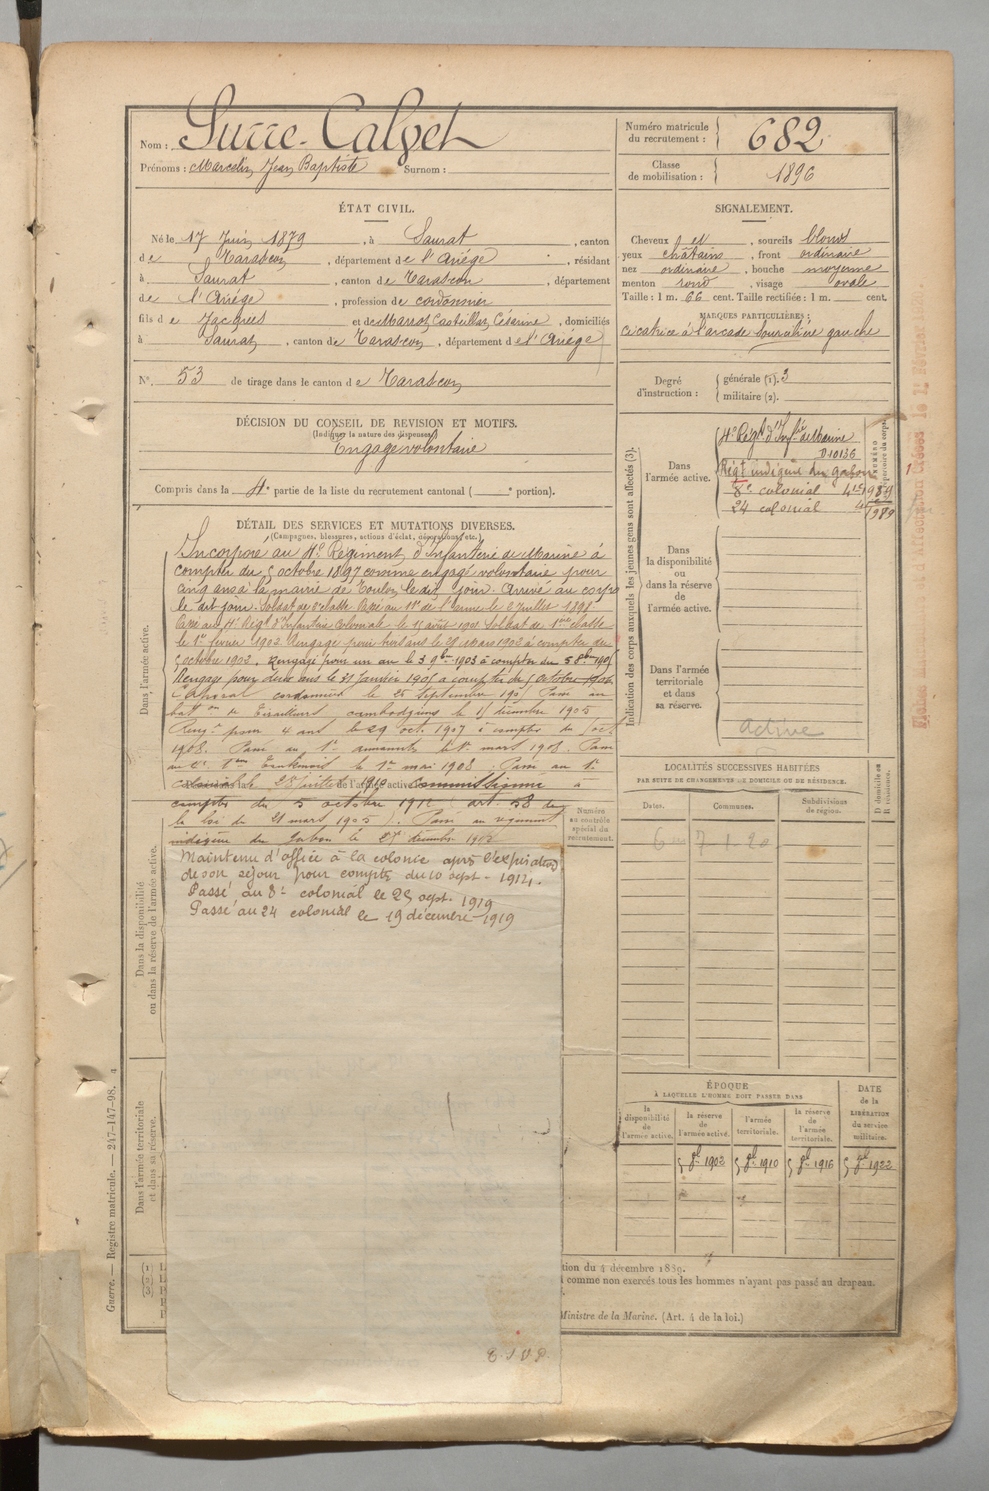 Nom : Surre-Calvet
Prénoms : Marcelin Jean Baptiste Surnom :
Numéro matricule du recrutement : 682
Classe de mobilisation : 1896
ÉTAT CIVIL.
Né le 17 Juin 1879, à Saurat, canton
de Tarascon, département de l'Ariège, résidant
à Saurat, canton de Tarascon, département
de l'Ariège, profession de cordonnier
fils de Jacques et de Marrot Castellat Césarine, domiciliés
à Saurat, canton de Tarascon, département de l'Ariège
N° 53 de tirage dans le canton de Tarascon
SIGNALEMENT.
Cheveux et, sourcils blonds
yeux châtains, front ordinaire
nez ordinaire, bouche moyenne
menton rond, visage ovale
Taille : 1 m. 66 cent. Taille rectifiée : 1 m. cent.
MARQUES PARTICULIÈRES :
cicatrice à l'arcade sourcilière gauche
Degré d'instruction : générale (1). 3
militaire (2).
DÉCISION DU CONSEIL DE REVISION ET MOTIFS.
(Indiquer la nature des dispenses)
Engagé volontaire
Compris dans la 4e partie de la liste du recrutement cantonal ( e portion).
DÉTAIL DES SERVICES ET MUTATIONS DIVERSES.
(Campagnes, blessures, actions d'éclat, décorations, etc.)
Incorporé au 4e Régiment d'Infanterie de Marine à
compter du 5 octobre 1897 comme engagé volontaire pour
cinq ans à la mairie de Toulon le dit jour. Arrivé au corps
le dit jour. Soldat de 2e classe Passé au 11e de l'arme le 2 Juillet 1898
Passé au 4e Régt d'Infanterie Coloniale le 15 août 1901 Soldat de 1ère classe
le 1er février 1902. Rengagé pour trois ans le 29 mars 1902 à compter du
5 octobre 1902. Rengagé pour un an le 3 9bre 1903 à compter du 5 8bre 1905
Rengagé pour deux ans le 31 Janvier 1905 à compter du 5 octobre 1906
Caporal cordonnier le 25 septembre 1905 Passé au
bat on de Tirailleurs cambodgiens le 15 décembre 1905
Reng.é pour 4 ans le 29 oct. 1907 à compter du 5 oct
1908. Passé au 1er annamite le 1er mars 1908. Passé
au 4e Tonkinois le 1er mai 1908. Passé au 1er
colonial le 28 juillet 1910 Commissionné à
compter du 5 octobre 1912 (art. 58 de
la loi du 21 mars 1905). Passé au régiment
indigène du Gabon le 27 décembre 1912
Maintenu d'office à la colonie après l'expiration
de son séjour pour compter du 10 sept. 1914.
Passé au 8e colonial le 25 sept. 1919
Passé au 24 colonial le 19 décembre 1919
T.S.V.P.
Dans l'armée active.
Dans la disponibilité ou dans la réserve de l'armée active.
Dans l'armée territoriale et dans sa réserve.
Numéro au contrôle spécial du recrutement.
Indication des corps auxquels les jeunes gens sont affectés (3).
NUMÉRO
Dans l'armée active.
4e Régt d'Infie de Marine
Régt indigène du Gabon
8e colonial
24 colonial
Dans la disponibilité ou dans la réserve de l'armée active.
Dans l'armée territoriale et dans sa réserve.
active
LOCALITÉS SUCCESSIVES HABITÉES
PAR SUITE DE CHANGEMENTS DE DOMICILE OU DE RÉSIDENCE.
Dates. Communes. Subdivisions de région. D domicile ou R résidence.
ÉPOQUE
À LAQUELLE L'HOMME DOIT PASSER DANS
la disponibilité de l'armée active.
la réserve de l'armée active.
l'armée territoriale.
la réserve de l'armée territoriale.
DATE de la LIBÉRATION du service militaire.
5 8bre 1902
5 8bre 1910
5 8bre 1916
5 8bre 1922
(1)
(2)
(3)
tion du 4 décembre 1889.
comme non exercés tous les hommes n'ayant pas passé au drapeau.
Ministre de la Marine. (Art. 4 de la loi.)
Guerre. — Registre matricule. — 247-147-98.